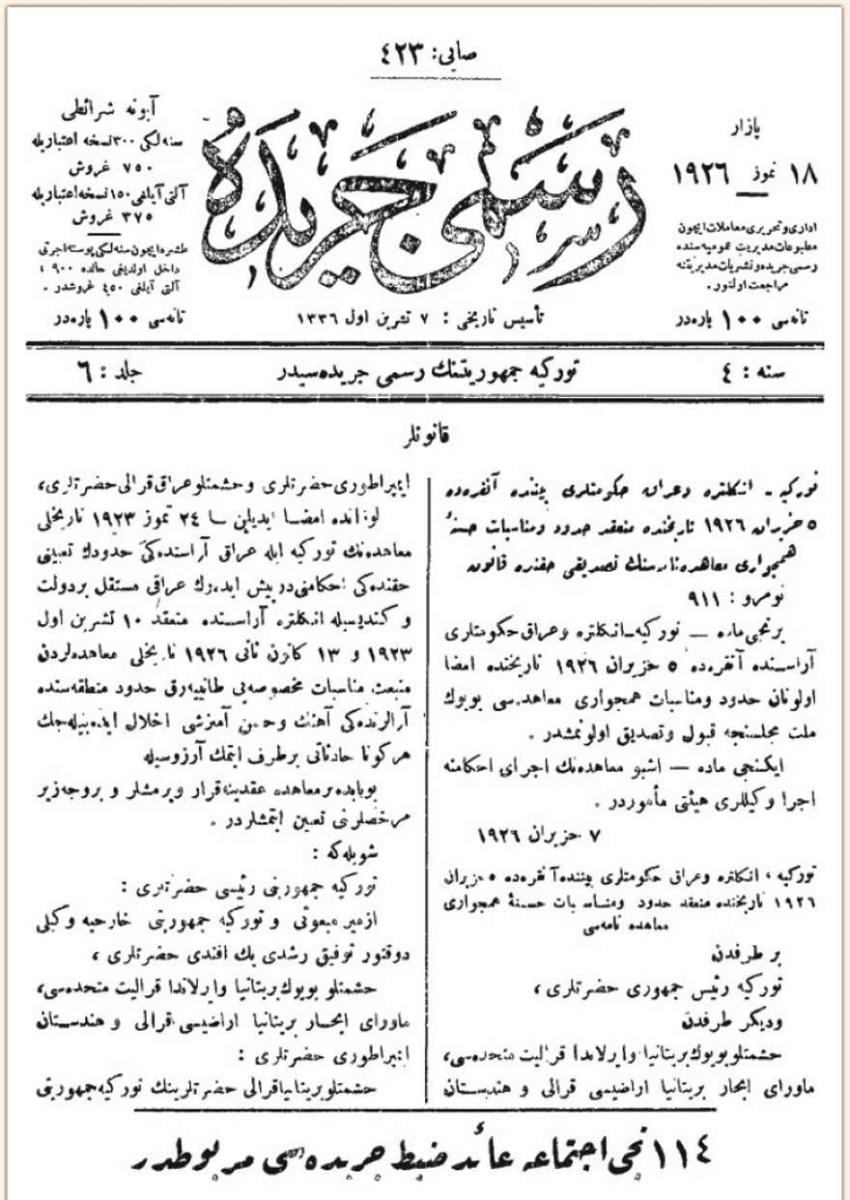 صايى: ٤٢٣
رسمى جريده
بازار
١٨ تموز ١٩٢٦
ادارى و تحريرى معاملات ايچون
مطبوعات مديريت عموميه سنده
رسمى جريده و نشريات مديريتنه
مراجعت اولنور.
نانه سى ١٠٠ پاره در
آبونه شرائطى
سنه لكى ٣٠٠ نسخه اعتباريله
٧٥٠ غروش
آلتى آيلغى ١٥٠ نسخه اعتباريله
٣٧٥ غروش
طشره ايچون سنه لكى پوسته اجرتى
داخل اولديغى حالده ٩٠٠ ؛
آلتى آيلغى ٤٥٠ غروشدر.
نانه سى ١٠٠ پاره در
تأسيس تاريخى : ٧ تشرين اول ١٣٣٦
سنه : ٤
توركيه جمهوريتنك رسمى جريده سيدر
جلد : ٦
قانونلر
توركيه ـ انكلتره وعراق حكومتلرى بيننده آنقره ده
٥ حزيران ١٩٢٦ تاريخنده منعقد حدود ومناسبات حسنهٔ
همجوارى معاهده نامه سنك تصديقى حقنده قانون
نومرو : ٩١١
برنجى ماده — توركيه ـ انكلتره وعراق حكومتلرى
آراسنده آنقره ده ٥ حزيران ١٩٢٦ تاريخنده امضا
اولونان حدود ومناسبات همجوارى معاهده سى بويوك
ملت مجلسنجه قبول وتصديق اولونمشدر .
ايكنجى ماده — اشبو معاهده نك اجراى احكامنه
اجرا وكيللرى هيئتى مأموردر .
٧ حزيران ١٩٢٦
توركيه ، انكلتره وعراق حكومتلرى بيننده آنقره ده ٥ حزيران
١٩٢٦ تاريخنده منعقد حدود ومناسبات حسنهٔ همجوارى
معاهده نامه سى
بر طرفدن
توركيه رئيس جمهورى حضرتلرى ،
وديكر طرفدن
حشمتلو بويوك بريتانيا وايرلاندا قراليت متحده سى،
ماوراى ابحار بريتانيا اراضيسى قرالى و هندستان
ايمپراطورى حضرتلرى وحشمتلو عراق قرالى حضرتلرى،
لوزانده امضا ايديلن ٢٤ تموز ١٩٢٣ تاريخلى
معاهده نك توركيه ايله عراق آراسنده كى حدودك تعيينى
حقنده كى احكامنى درپيش ايده رك عراقى مستقل بر دولت
و كنديسيله انكلتره آراسنده منعقد ١٠ تشرين اول
١٩٢٣ و ١٣ كانون ثانى ١٩٢٦ تاريخلى معاهده لردن
منبعث مناسبات مخصوصه يى طانييه رق حدود منطقه سنده
آرالرنده كى آهنك وحسن آميزشى اخلال ايده بيله جك
هركونا حادثاتى برطرف ايتمك آرزوسيله
بوبابده بر معاهده عقدينه قرار ويرمشلر و بروجه زير
مرخصلرنى تعيين ايتمشلردر .
شويله كه :
توركيه جمهوريتى رئيسى حضرتلرى :
ازمير مبعوثى و توركيه جمهوريتى خارجيه وكيلى
دوقتور توفيق رشدى بك افندى حضرتلرى ،
حشمتلو بويوك بريتانيا وايرلاندا قراليت متحده سى،
ماوراى ابحار بريتانيا اراضيسى قرالى و هندستان
ايمپراطورى حضرتلرى :
حشمتلو بريتانيا قرالى حضرتلرينك توركيه جمهوريتى
١١٤ نجى اجتماعه عائد ضبط جريده سى مربوطدر